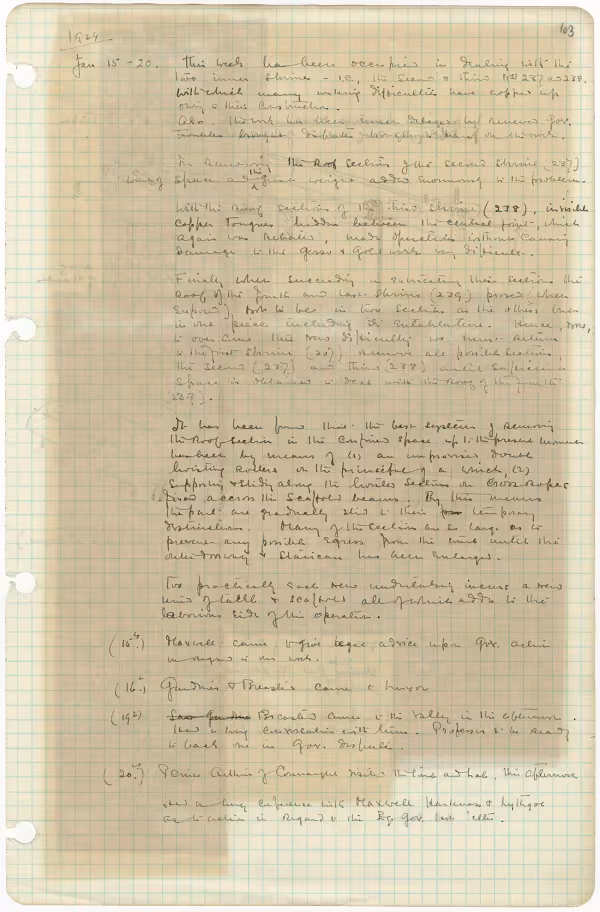 103
1924
Jan 15 - 20. This week has been occupied in dealing with the
two inner shrines - i.e, the second & third Nos 237 and 238.
with which many working difficulties have cropped up
owing to their construction.
Also the work has been much delayed by renewed Gov.
troubles
In removing the roof section of the second shrine (237)
space and the great weight added enormously to the problem.
With the roof sections of the third shrine (238), invisible
copper tongues hidden between the central joint, which
again was rebated, made operations without causing
damage to the gesso & gold work very difficult.
Finally, when succeeding in extricating these sections the
roof of the fourth and last shrine (239) proved (when
exposed), not to be in two sections as the others but
in one piece including its entablature. Hence, now,
to overcome this new difficulty we must return
to the first shrine (207) remove all possible sections,
the second (237) and third (238) until sufficient
space is obtained to deal with the roof of the fourth
(239).
It has been found that the best system of removing
the roof section in the confined space up to the present moment
has been by means of (1) an improvised
hoisting rollers on the principle of a winch, (2)
supporting & sliding along the hoisted sections on cross ropes
fixed accross the scaffold beams. By this means
the part are gradually slid to their temporary
destinations. Many of the sections are so large as to
prevent any possible egress from the tomb until the
outer doorway & staircase has been enlarged.
Too practically each new undertaking incurs a new
kind of tackle & scaffold all of which adds to the
laborious side of the operation.
(15th) Maxwell came to give legal advice upon Gov. action
in regard to our work.
(16th) Gardiner & Breasted came to Luxor
(19th) Breasted came to the Valley in the afternoon.
Had a long conversation with him. Professor to be ready
to back me in Gov. dispute.
(20th) Prince Arthur of Connaught visited the tomb and lab. this afternoon
Had a long conference with Maxwell Harkness & Lythgoe
as to action in regard to the Eg. Gov. letter.